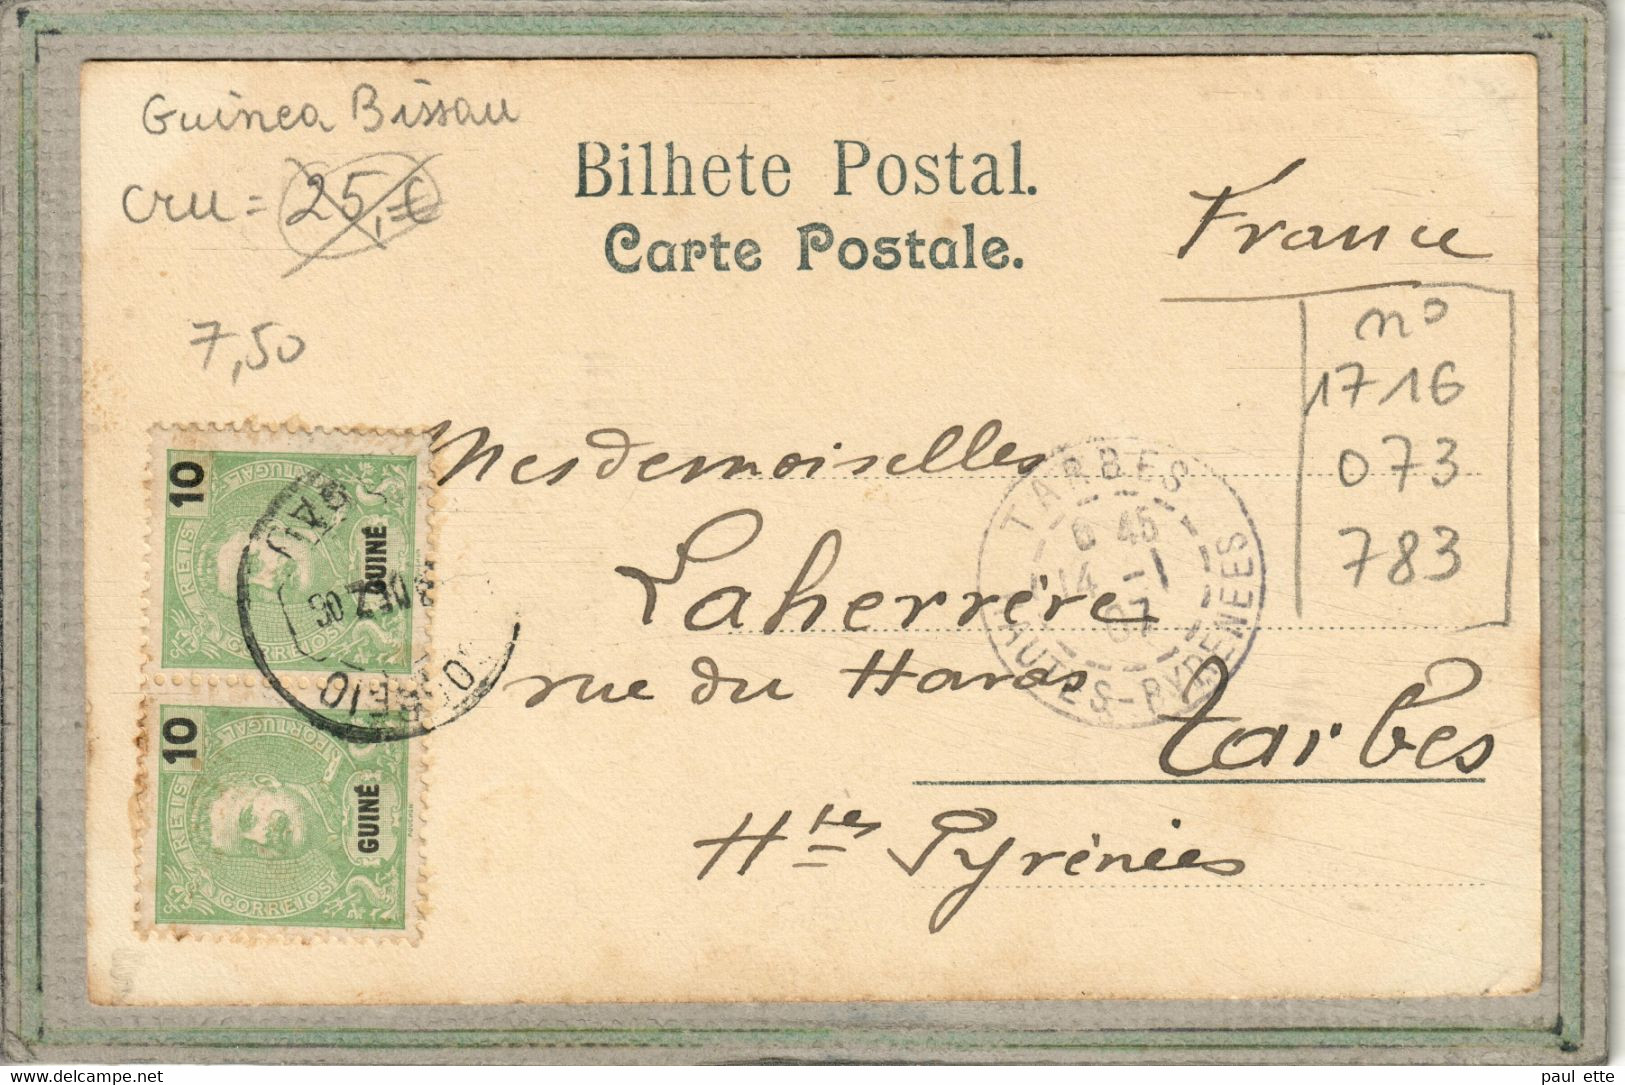 Guinea Bissau
cru = 25,=€
7,50
Bilhete Postal.
Carte Postale.
France
n°
1716
073
783
Mesdemoiselles
Laherrère
rue du Haras
Tarbes
Htes Pyrénées
TARBES
6 45
14 - 1
07
HAUTES-PYRENEES
10
REIS
PORTUGAL
CORREIOS
GUINÉ
DEZ 06
CORREIO
10
REIS
PORTUGAL
CORREIOS
GUINÉ
paul ette